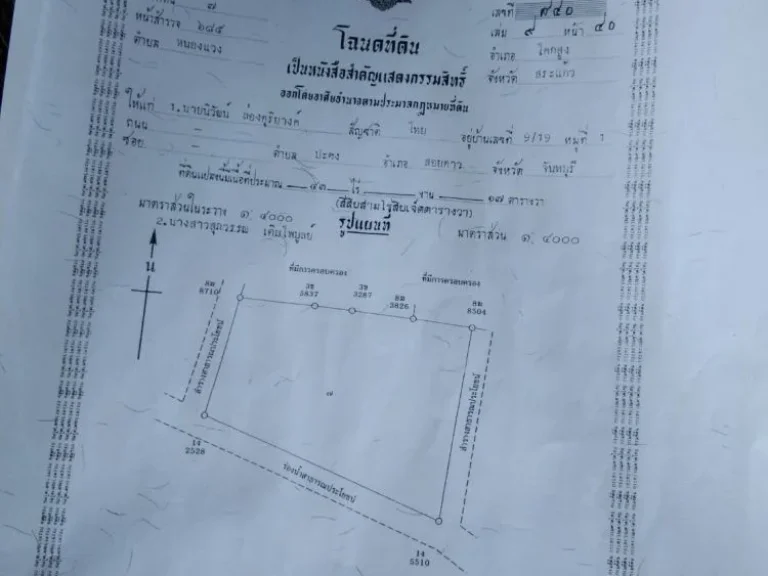 ๗
หน้าสำรวจ ๖๘๕
ตำบล หนองแวง
เลขที่ ๙๔๐
เล่ม ๙ หน้า ๔๐
อำเภอ โคกสูง
จังหวัด สระแก้ว
โฉนดที่ดิน
เป็นหนังสือสำคัญแสดงกรรมสิทธิ์
ออกโดยอาศัยอำนาจตามประมวลกฎหมายที่ดิน
ให้แก่ ๑.นายนิวัฒน์ สัญชาติ ไทย อยู่บ้านเลขที่ 9/19 หมู่ที่ 1
ถนน –
ซอย – ตำบล ปะตง อำเภอ สอยดาว จังหวัด จันทบุรี
ที่ดินแปลงนี้มีเนื้อที่ประมาณ ๔๓ ไร่ – งาน ๑๗ ตารางวา
(สี่สิบสามไร่สิบเจ็ดตารางวา)
มาตราส่วนในระวาง ๑:๔๐๐๐ รูปแผนที่ มาตราส่วน ๑:๔๐๐๐
2.นางสาวสุภวรรณ เดินไพบูลย์
น
ที่มีการครอบครอง
ที่มีการครอบครอง
8ฆ
8710
3ข
3837
3ข
3287
8ฆ
3826
8ฆ
8504
ลำรางสาธารณประโยชน์
๗
ลำรางสาธารณประโยชน์
14
2528
ร่องน้ำสาธารณประโยชน์
14
5510